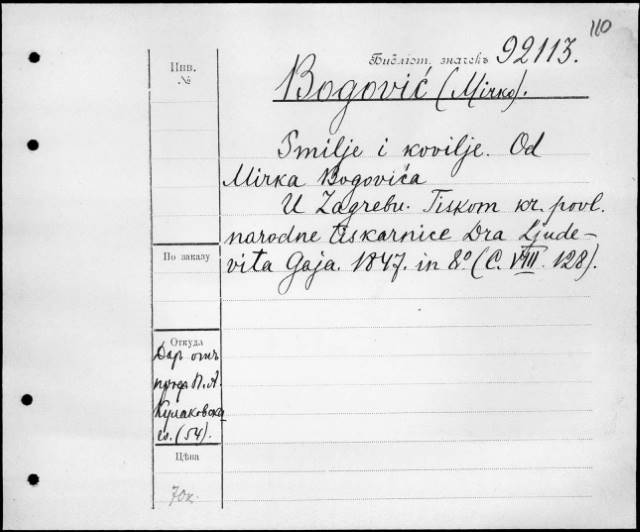 110
Инв.
№
Библіот. значекъ 92113.
Bogović (Mirko).
Smilje i kovilje. Od
Mirka Bogovića
U Zagrebu. Tiskom kr. povl.
narodne tiskarnice Dra Ljude-
vita Gaja. 1847. in 8º (C. VIII. 128).
По заказу
Откуда
Даръ отъ
проф. П. А.
Кулаковска
го. (54).
Цѣна
70к.